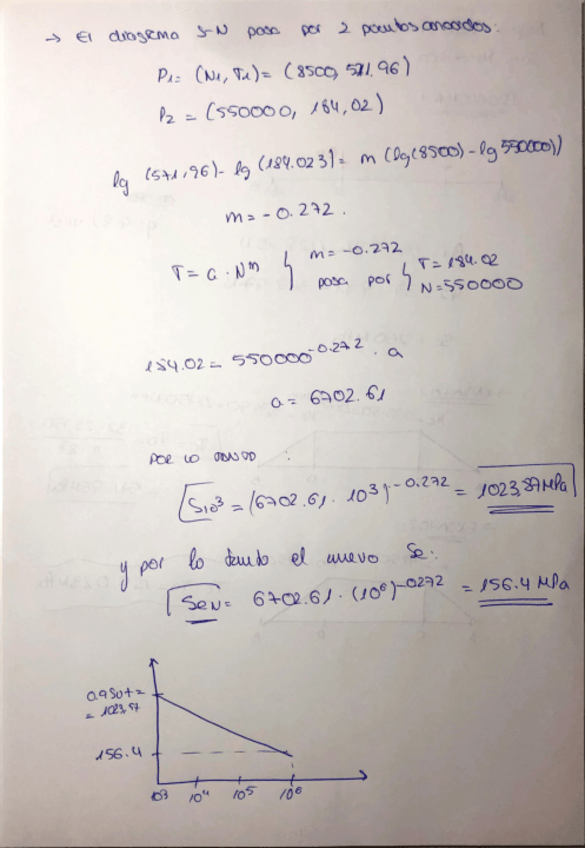 → El diagrama S-N pasa por 2 puntos conocidos:
P1 = (N1, T1) = (8500, 571.96)
P2 = (550000, 184,02)
lg (571,96) - lg (184.023) = m (lg(8500) - lg 550000))
m = -0.272.
T = a · N^m } m = -0.272 pasa por } T = 184.02 N = 550000
184.02 = 550000^-0.272 · a
a = 6702.61
por lo tanto :
S10³ = (6702.61 · 10³)^-0.272 = 1023,87 MPa
y por lo tanto el nuevo Se:
SeN = 6702.61 · (10⁶)^-0272 = 156.4 MPa
0.9Sut =
= 1023,87
156.4
10³ 10⁴ 10⁵ 10⁶